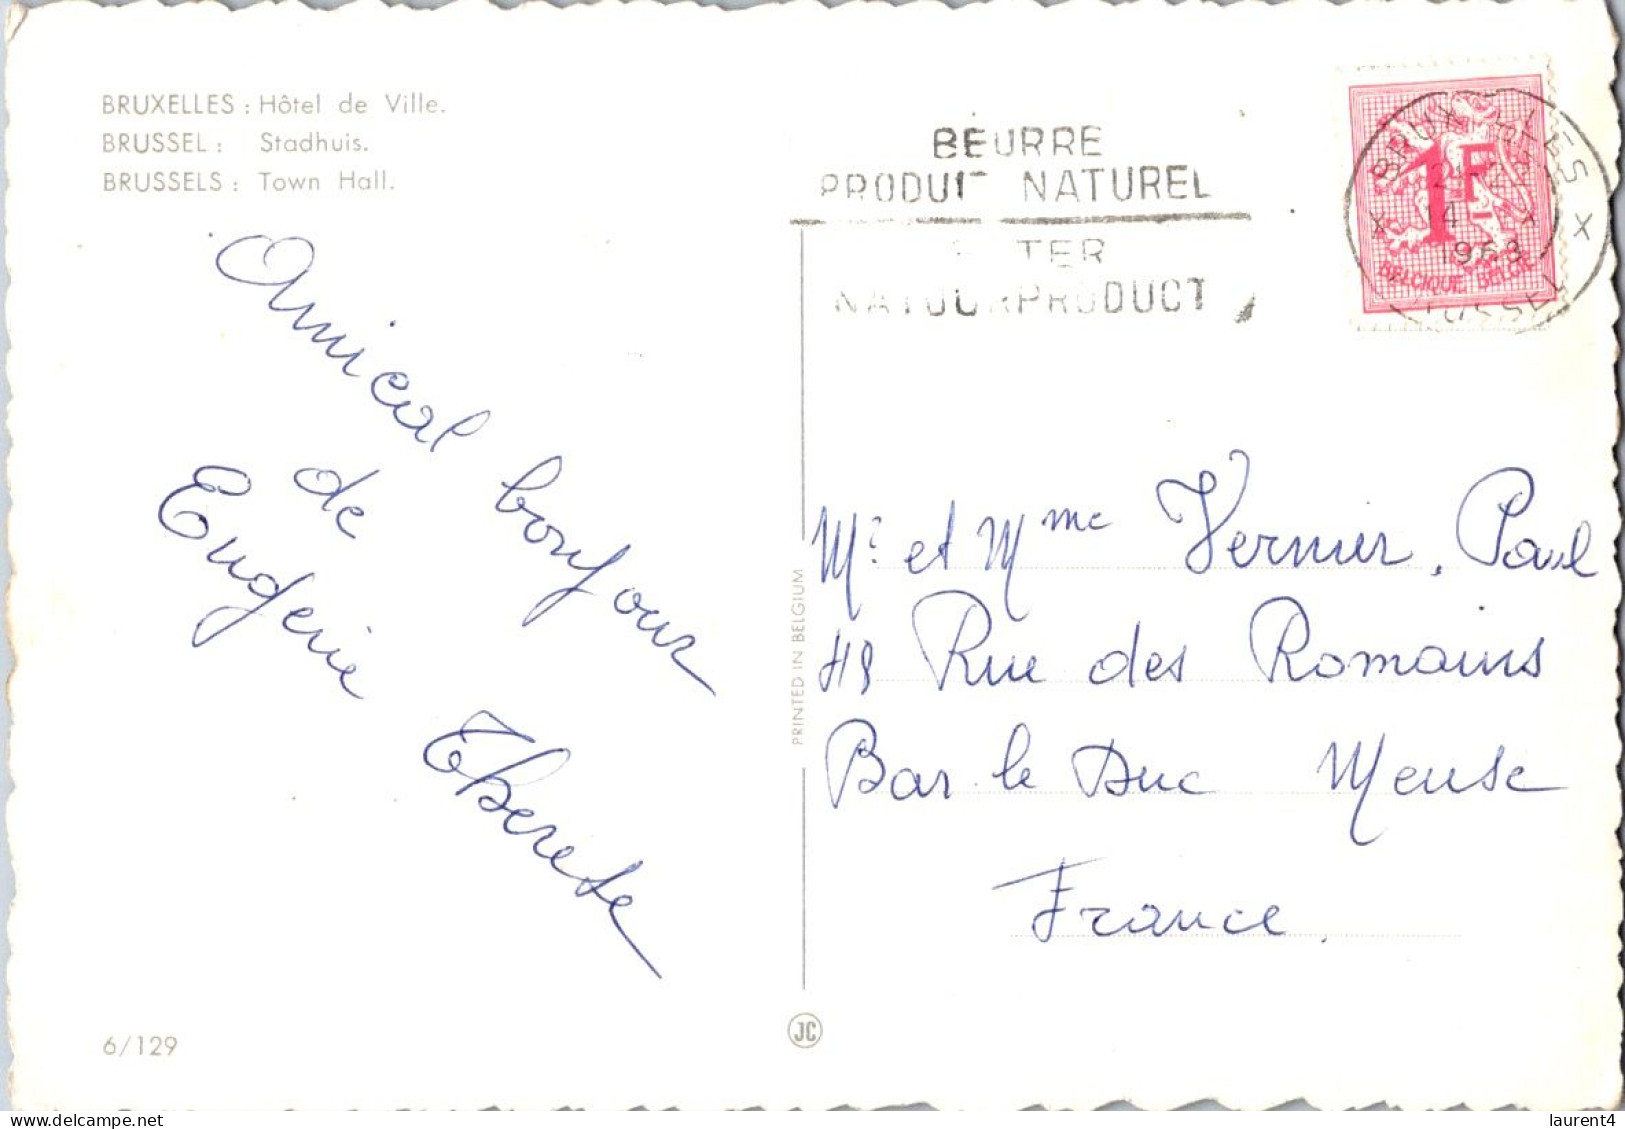 BRUXELLES : Hôtel de Ville.
BRUSSEL : Stadhuis.
BRUSSELS : Town Hall.
BEURRE
PRODUIT NATUREL
NATUURPRODUCT
BRUXELLES
14
1963
1F
BELGIQUE BELGIE
Amical bonjour
de
Eugenie Therese
PRINTED IN BELGIUM
Mr et Mme Vernier. Paul
Rue des Romains
Bar le Duc Meuse
France.
JC
6/129
laurent4